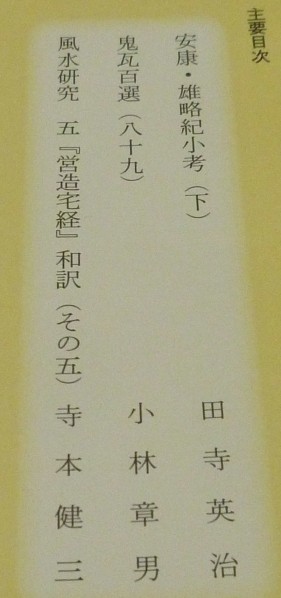 主要目次
安康・雄略紀小考（下）　田寺英治
鬼瓦百選（八十九）　小林章男
風水研究　五『営造宅経』和訳（その五）　寺本健三